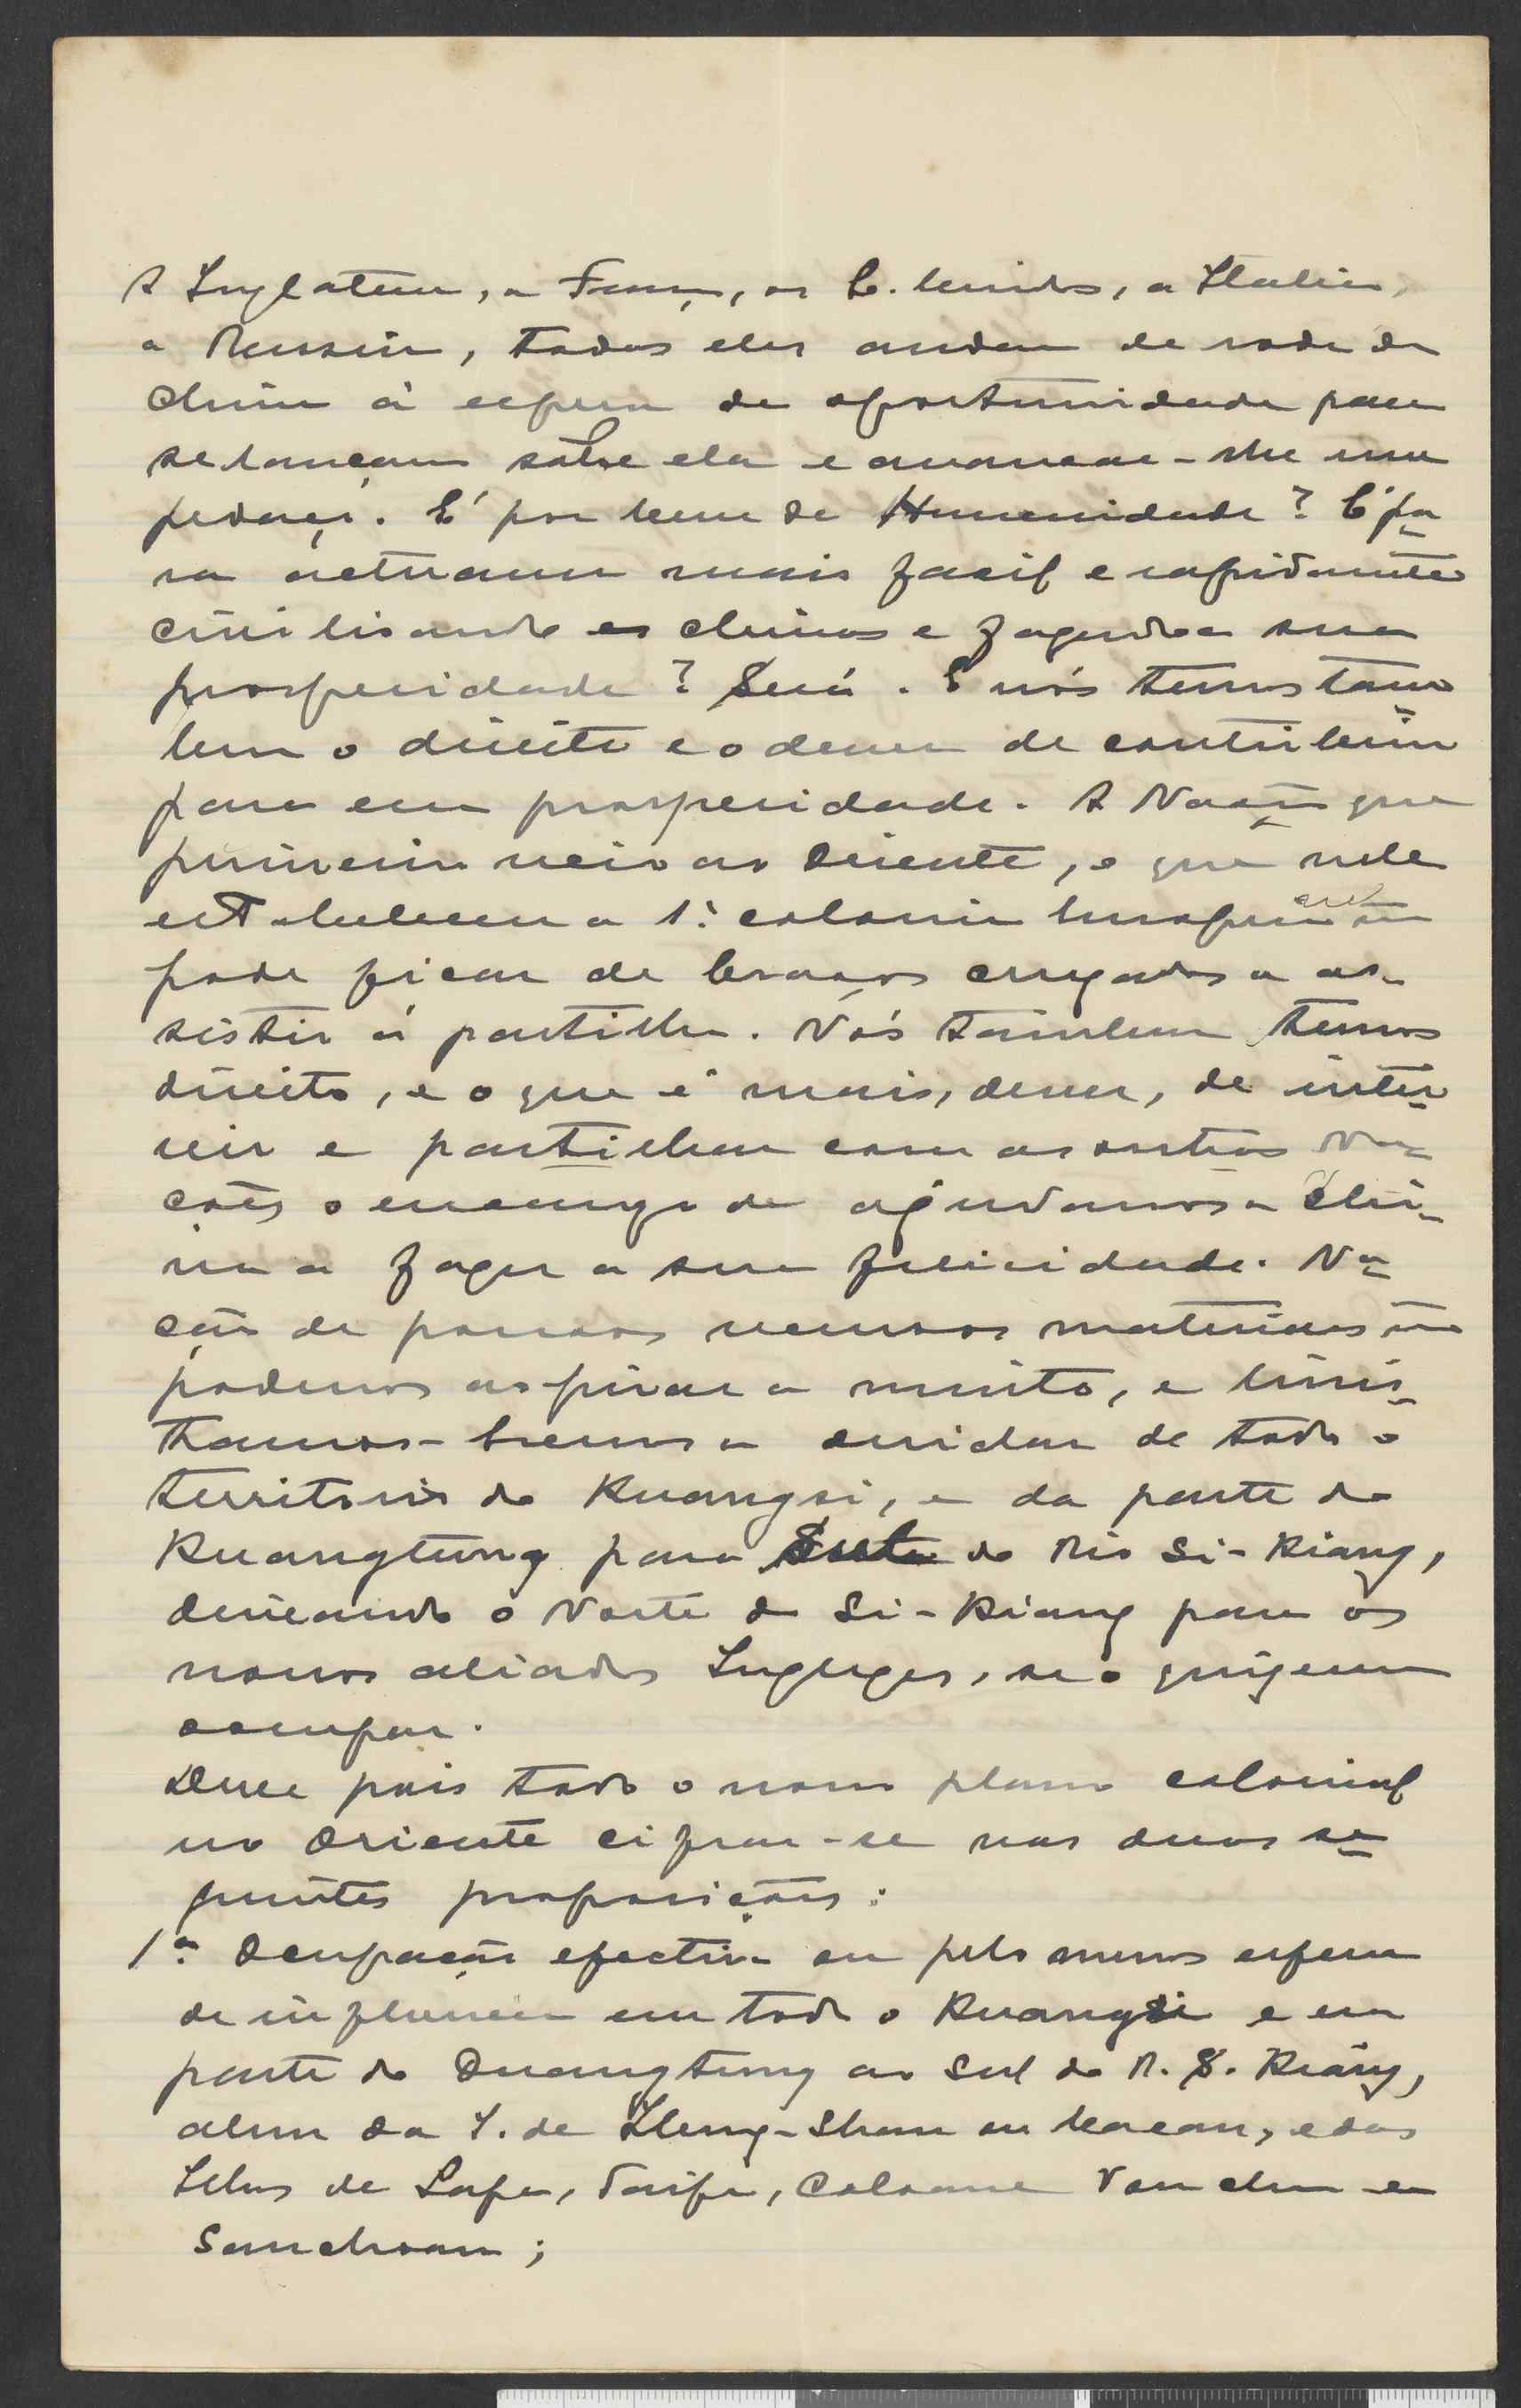 A Inglaterra, a França, os E. Unidos, a Italia,
a Russia, todos eles andam de roda da
China á espera de oportunidade para
se lançarem sôbre ela e arrancar-lhe um
pedaço. É por bem da Humanidade? É pa-
ra actuarem mais facil e rapidamente
civilisando os chinos e fazendo a sua
prosperidade? Será. E nós temos tam
bem o direito e o dever de contribuir
para essa prosperidade. A Nação que
primeiro veio ao Oriente, e que nele
estabeleceu a 1ª colonia Europeia não
pode ficar de braços cruzados a as-
sistir á partilha. Nós tambem temos
direito, e o que é mais, dever, de inter-
vir e partilhar com as outras Na-
ções o encargo de ajudarmos a Chi-
na a fazer a sua felicidade. Na-
ção de poucos recursos materiaes não
podemos aspirar a muito, e limi-
tharmos-hemos a cuidar de todo o
territorio do Kuangsi, e da parte do
Kuangtung para do Rio Si-Kiang,
deixando o Norte do Si-Kiang para os
nossos aliados Inglezes, se o quizerem
ocupar.
Deve pois todo o nosso plano colonial
no Oriente cifrar-se nas duas se-
guintes proposições:
1ª Ocupação efectiva ou pelo menos esfera
de influencia em todo o Kuangsi e em
parte do Quangtung ao Sul do R. S. Kiang,
alem da I. de Heung-Shan ou Macau, e das
Ilhas de Lapa, Taipa, Coloane Vonchu e
Sanchoan;